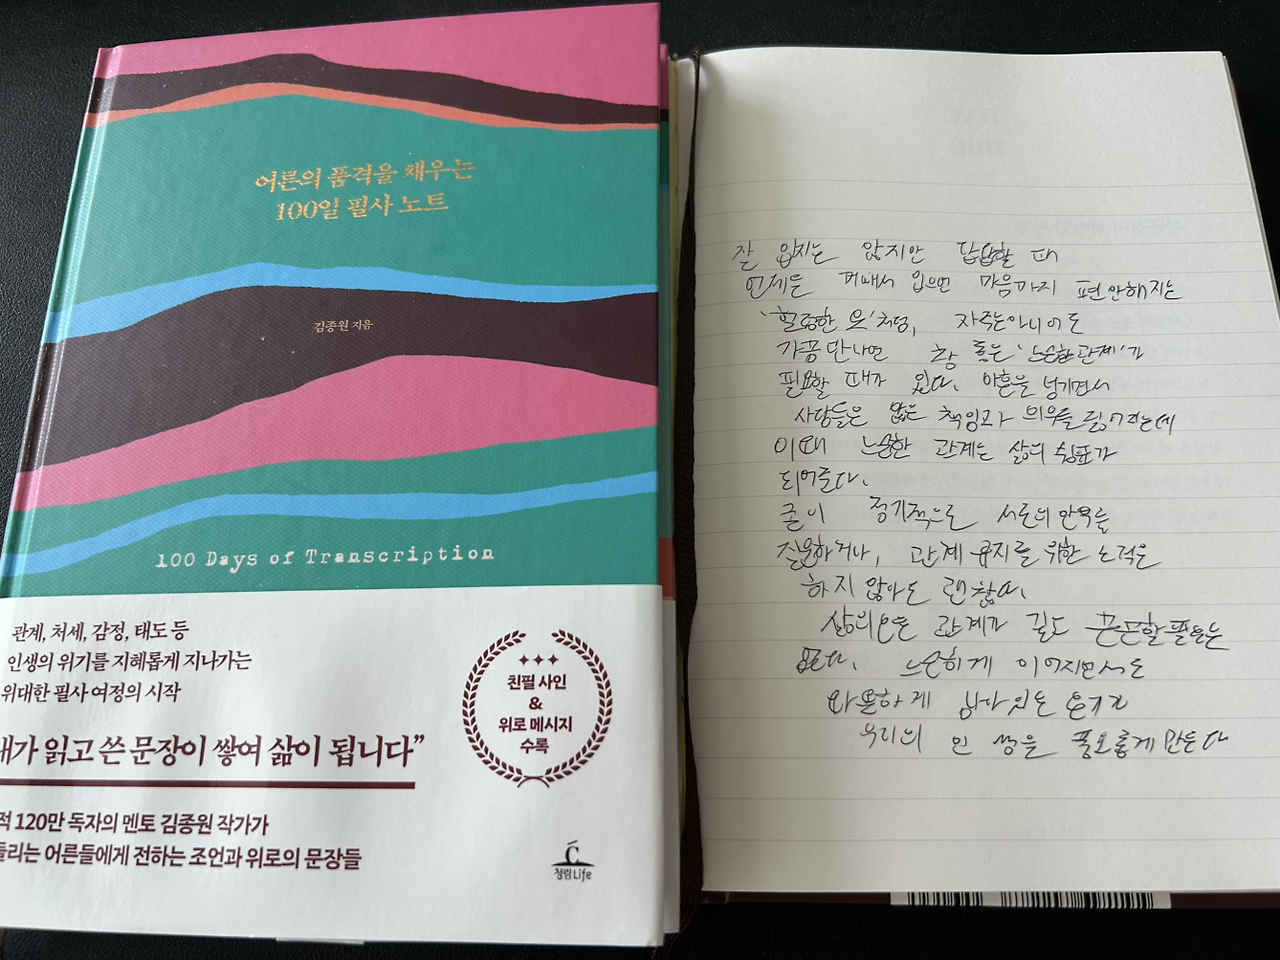 어른의 품격을 채우는
100일 필사 노트
김종원 지음
100 Days of Transcription
관계, 처세, 감정, 태도 등
인생의 위기를 지혜롭게 지나가는
위대한 필사 여정의 시작
내가 읽고 쓴 문장이 쌓여 삶이 됩니다”
적 120만 독자의 멘토 김종원 작가가
들리는 어른들에게 전하는 조언과 위로의 문장들
친필 사인
&
위로 메시지
수록
청림Life
잘 입지는 않지만 답답할 때
언제든 꺼내서 입으면 마음까지 편안해지는
'헐렁한 옷'처럼, 자주는아니어도
가끔 만나면 참 좋은 '느슨한 관계'가
필요할 때가 있다. 마흔을 넘기면서
사람들은 많은 책임과 의무를 짊어지는데
이때 느슨한 관계는 삶의 쉼표가
되어준다.
굳이 정기적으로 서로의 안부를
질문하거나, 관계 유지를 위한 노력은
하지 않아도 괜찮다.
삶의 모든 관계가 길고 끈끈할 필요는
없다. 느슨하게 이어지면서도
따뜻하게 남아있는 온기가
우리의 인생을 풍요롭게 만든다